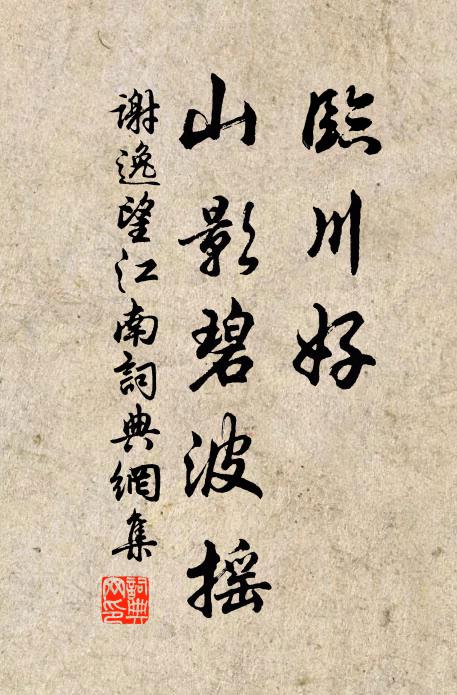 臨川好
山影碧波摇
謝逸望江南詞典網集
詞典
网印